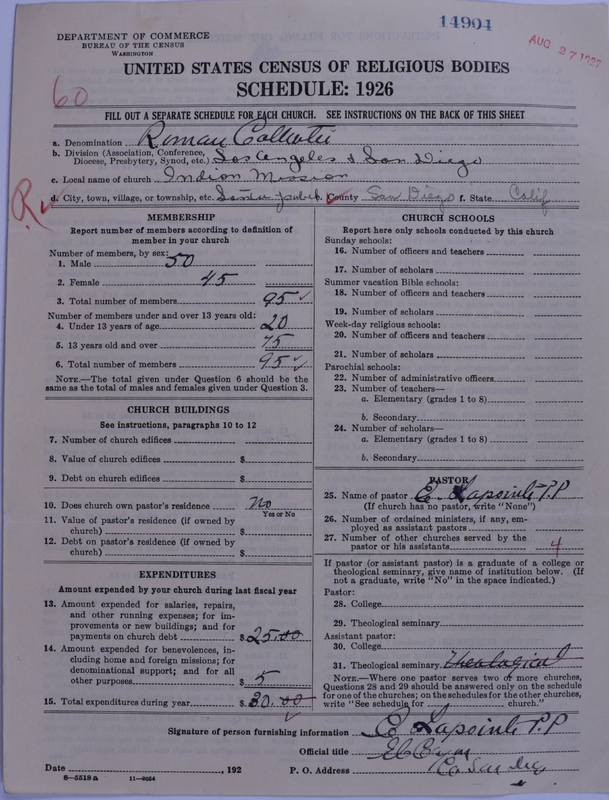 14904
AUG 27 1927
DEPARTMENT OF COMMERCE
BUREAU OF THE CENSUS
WASHINGTON
UNITED STATES CENSUS OF RELIGIOUS BODIES
SCHEDULE: 1926
60
FILL OUT A SEPARATE SCHEDULE FOR EACH CHURCH. SEE INSTRUCTIONS ON THE BACK OF THIS SHEET
a. Denomination Roman Catholic
b. Division (Association, Conference, Diocese, Presbytery, Synod, etc.) Los Angeles & San Diego
c. Local name of church Indian Mission
d. City, town, village, or township, etc. Santa Ysabel County San Diego f. State Calif
R
MEMBERSHIP
Report number of members according to definition of
member in your church
Number of members, by sex:
1. Male 50
2. Female 45
3. Total number of members 95
Number of members under and over 13 years old:
4. Under 13 years of age 20
5. 13 years old and over 75
6. Total number of members 95
NOTE.—The total given under Question 6 should be the
same as the total of males and females given under Question 3.
CHURCH BUILDINGS
See instructions, paragraphs 10 to 12
7. Number of church edifices
8. Value of church edifices $
9. Debt on church edifices $
10. Does church own pastor's residence No
Yes or No
11. Value of pastor's residence (if owned by
church) $
12. Debt on pastor's residence (if owned by
church) $
EXPENDITURES
Amount expended by your church during last fiscal year
13. Amount expended for salaries, repairs,
and other running expenses; for im-
provements or new buildings; and for
payments on church debt $ 25.00
14. Amount expended for benevolences, in-
cluding home and foreign missions; for
denominational support; and for all
other purposes $ 5
15. Total expenditures during year $ 30.00
CHURCH SCHOOLS
Report here only schools conducted by this church
Sunday schools:
16. Number of officers and teachers
17. Number of scholars
Summer vacation Bible schools:
18. Number of officers and teachers
19. Number of scholars
Week-day religious schools:
20. Number of officers and teachers
21. Number of scholars
Parochial schools:
22. Number of administrative officers
23. Number of teachers—
a. Elementary (grades 1 to 8)
b. Secondary
24. Number of scholars—
a. Elementary (grades 1 to 8)
b. Secondary
PASTOR
25. Name of pastor E. Lapointe P.P
(If church has no pastor, write "None")
26. Number of ordained ministers, if any, em-
ployed as assistant pastors
27. Number of other churches served by the
pastor or his assistants 4
If pastor (or assistant pastor) is a graduate of a college or
theological seminary, give name of institution below. (If
not a graduate, write "No" in the space indicated.)
Pastor:
28. College
29. Theological seminary
Assistant pastor:
30. College
31. Theological seminary Theological
NOTE.—Where one pastor serves two or more churches,
Questions 28 and 29 should be answered only on the schedule
for one of the churches; on the schedules for the other churches,
write "See schedule for church."
Signature of person furnishing information E Lapointe P.P
Official title El Cajon
Date , 192 P. O. Address Co San Diego
8—5518 a 11—9054